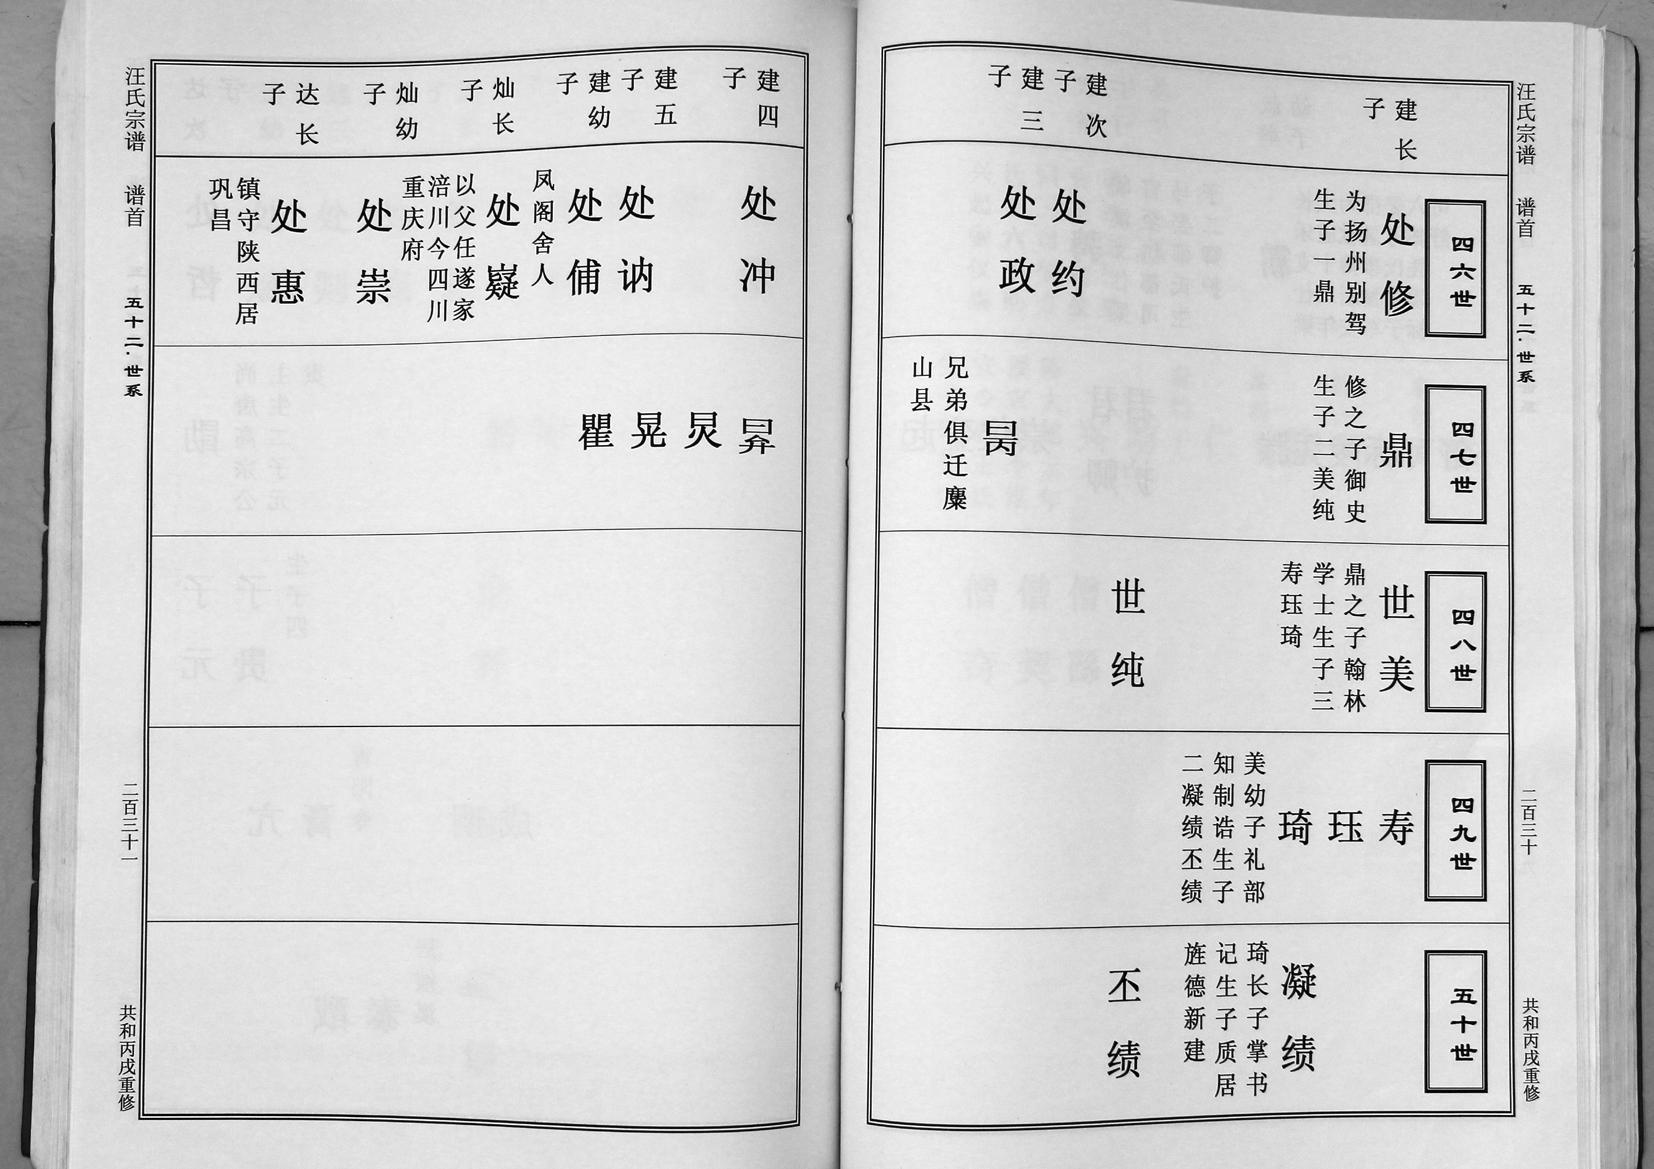 汪氏宗谱
谱首
五十二·世系
二百三十
共和丙戌重修
四六世
建长
子
处修
为扬州别驾
生子一鼎
建次
子
处约
建三
子
处政
四七世
鼎
修之子御史
生子二美纯
昺
兄弟俱迁麋
山县
四八世
世美
鼎之子翰林
学士生子三
寿珏琦
世纯
四九世
寿
珏
琦
美幼子礼部
知制诰生子
二凝绩丕绩
五十世
凝绩
琦长子掌书
记生子质居
旌德新建
丕绩
建四
子
处冲
建五
子
处讷
建幼
子
处俌
凤阁舍人
灿长
子
处嶷
以父任遂家
涪川今四川
重庆府
灿幼
子
处崇
达长
子
处惠
镇守陕西居
巩昌
昇
炅
晃
瞿
汪氏宗谱
谱首
五十二·世系
二百三十一
共和丙戌重修